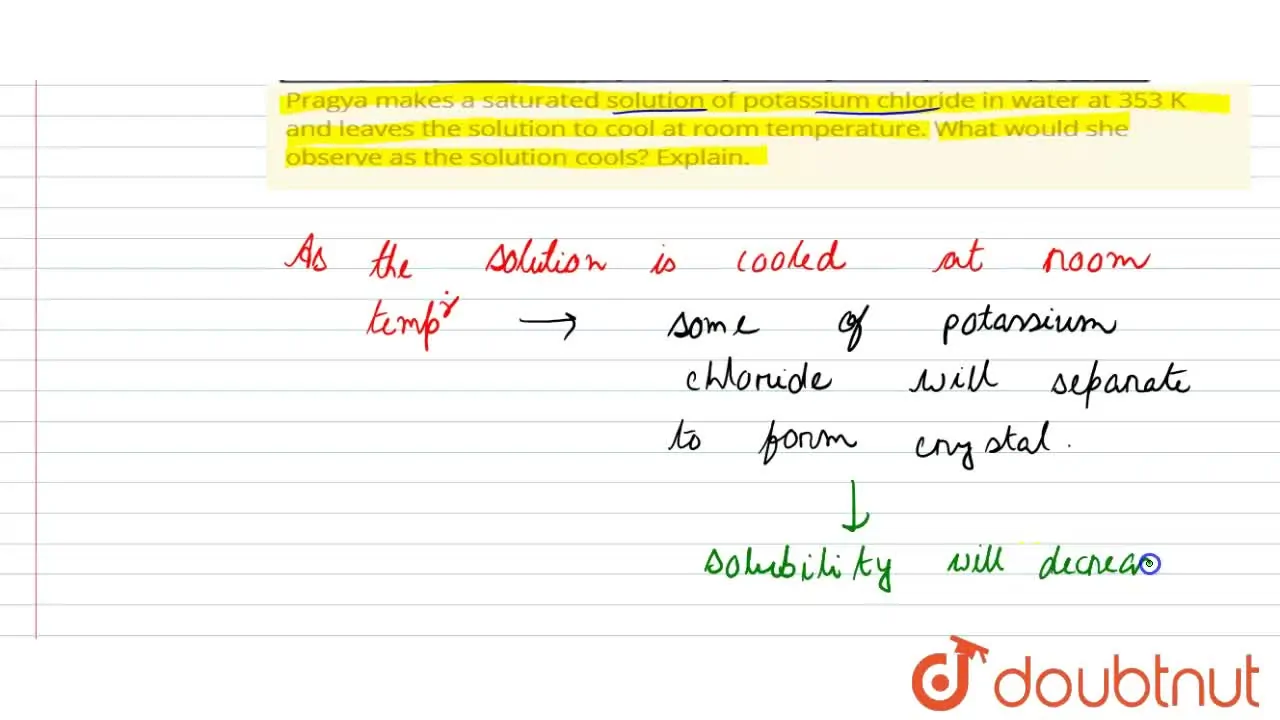 Pragya makes a saturated solution of potassium chloride in water at 353 K
and leaves the solution to cool at room temperature. What would she
observe as the solution cools? Explain.
As the solution is cooled at room
tempr → some of potassium
chloride will separate
to form crystal.
↓
solubility will decreas
doubtnut